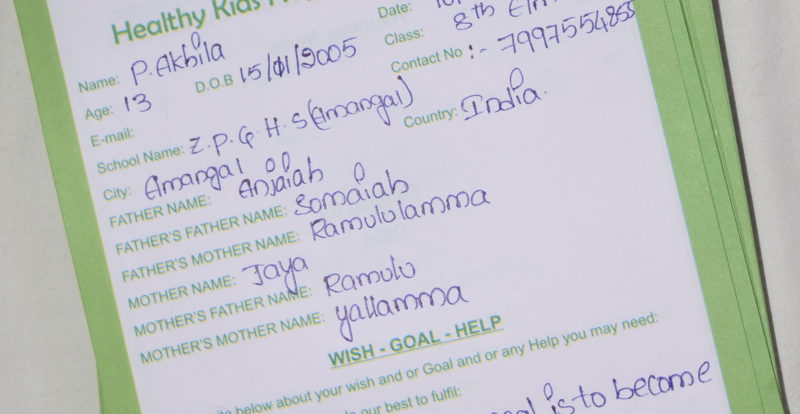 Healthy Kids
Date:
Name: P. Akhila Class: 8th
Age: 13 D.O.B 15/01/2005 Contact No :- 7997554855
E-mail:
School Name: Z.P.G.H.S (Amangal)
City: Amangal Country: India.
FATHER NAME: Anjaiah
FATHER'S FATHER NAME: Somaiah
FATHER'S MOTHER NAME: Ramululamma
MOTHER NAME: Jaya
MOTHER'S FATHER NAME: Ramulu
MOTHER'S MOTHER NAME: yallamma
WISH - GOAL - HELP
below about your wish and or Goal and or any Help you may need:
our best to fulfil:
is to become